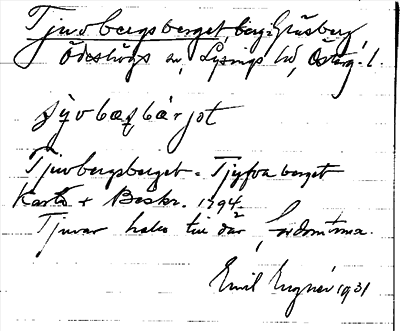 Tjuvbergsberget, berg: Gråsberg,
Ödeshögs sn, Lysings hd, Österg. l.
Tjuvbergsberget - Tjyfva berget
Karta + Beskr. 1794.
Tjuvar hade till där, fordomtima.
Emil Engnér 1931